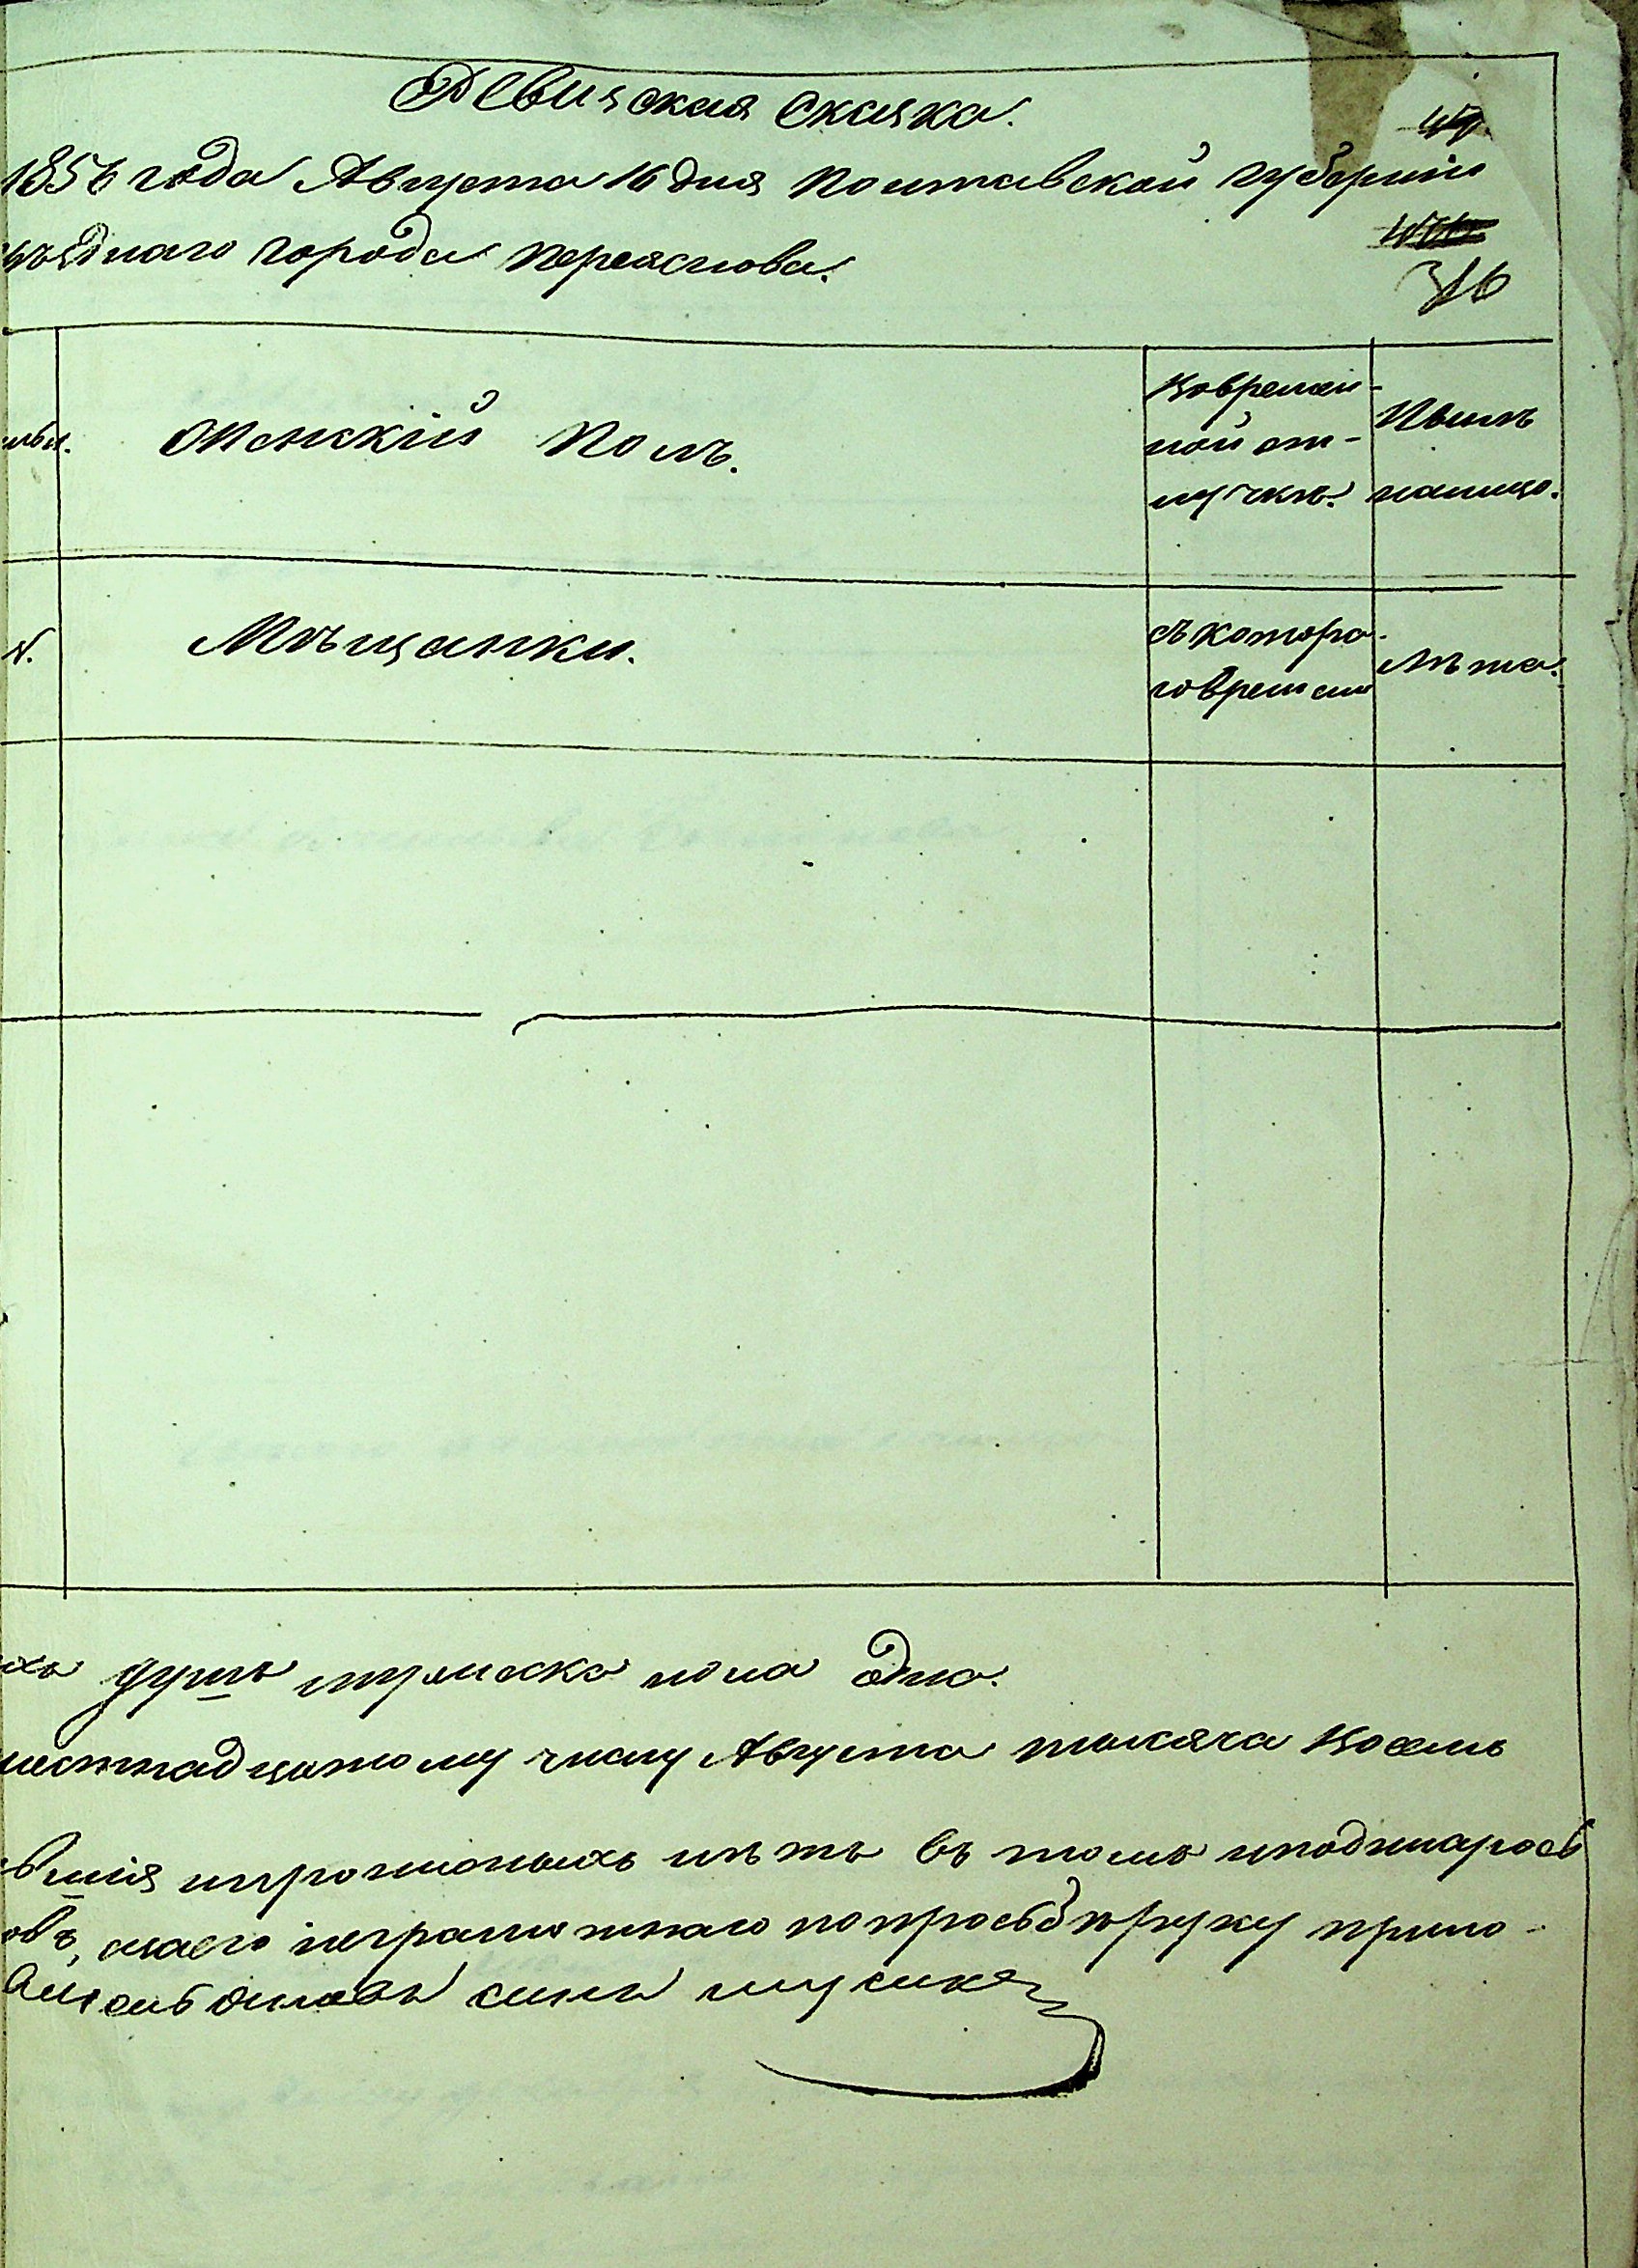 Ревизская сказка.
1858 года Августа 16 дня Полтавской губерніи
уѣзднаго города Переяслова.
316
Женскій полъ.
Во времен-
ной от-
лучкѣ.
Нынѣ
на лицо.
Мѣщанки.
Съ которо-
го времени
Лѣта.
душъ мужеска пола одно.
шестнадцатому числу Августа тысяча восемь
прописныхъ нѣтъ въ томъ и подписаюсь
неграмотнаго по просьбѣ руку прило-
сынъ